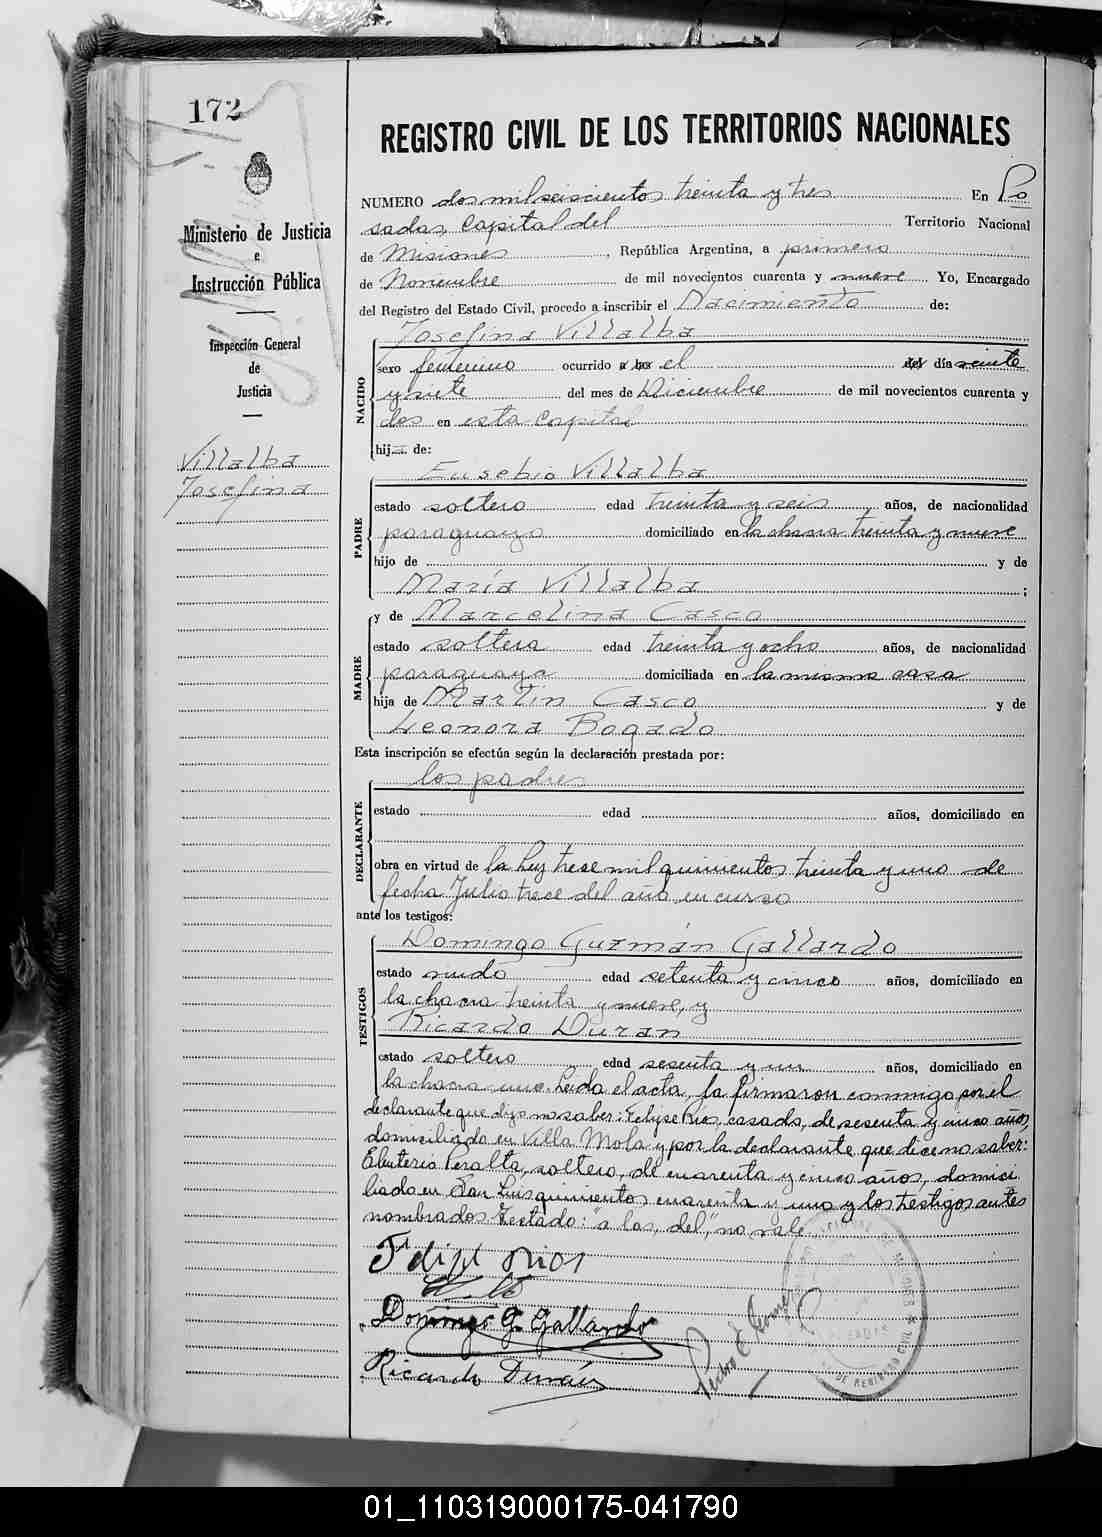 172
REGISTRO CIVIL DE LOS TERRITORIOS NACIONALES
Ministerio de Justicia
e
Instrucción Pública
Inspección General
de
Justicia
Villalba
Josefina
NUMERO dos mil seiscientos treinta y tres En Po
sadas, Capital del Territorio Nacional
de Misiones, República Argentina, a primero
de Noviembre de mil novecientos cuarenta y nueve Yo, Encargado
del Registro del Estado Civil, procedo a inscribir el Nacimiento de:
NACIDO
Josefina Villalba
sexo femenino ocurrido a las el del día veinte
y siete del mes de Diciembre de mil novecientos cuarenta y
dos en esta Capital
hij de:
PADRE
Eusebio Villalba
estado soltero edad treinta y seis años, de nacionalidad
paraguayo domiciliado en la chacra treinta y nueve
hijo de y de
María Villalba ;
MADRE
y de Marcelina Casco
estado soltera edad treinta y ocho años, de nacionalidad
paraguaya domiciliada en la misma casa
hija de Martin Casco y de
Leonora Bogado
Esta inscripción se efectúa según la declaración prestada por:
DECLARANTE
los padres
estado edad años, domiciliado en
obra en virtud de la Ley trece mil quinientos treinta y uno de
fecha Julio trece del año en curso
ante los testigos:
TESTIGOS
Domingo Guzmán Gallardo
estado viudo edad setenta y cinco años, domiciliado en
la chacra treinta y nueve, y
Ricardo Duran
estado soltero edad sesenta y un años, domiciliado en
la chacra uno. Leida el acta, la firmaron conmigo por el
declarante que dijo no saber: Felipe Rios, casado, de sesenta y cinco años,
domiciliado en Villa Mola y por la declarante que dice no saber:
Eleuterio Peralta, soltero, de cuarenta y cinco años, domici
liado en San Luis quinientos cuarenta y uno y los testigos antes
nombrados. Testado: "a las, del", no vale.
Felipe Rios
Domingo G. Gallardo
Ricardo Durán
Pedro E.
DE REGISTRO CIVIL
01_110319000175-041790